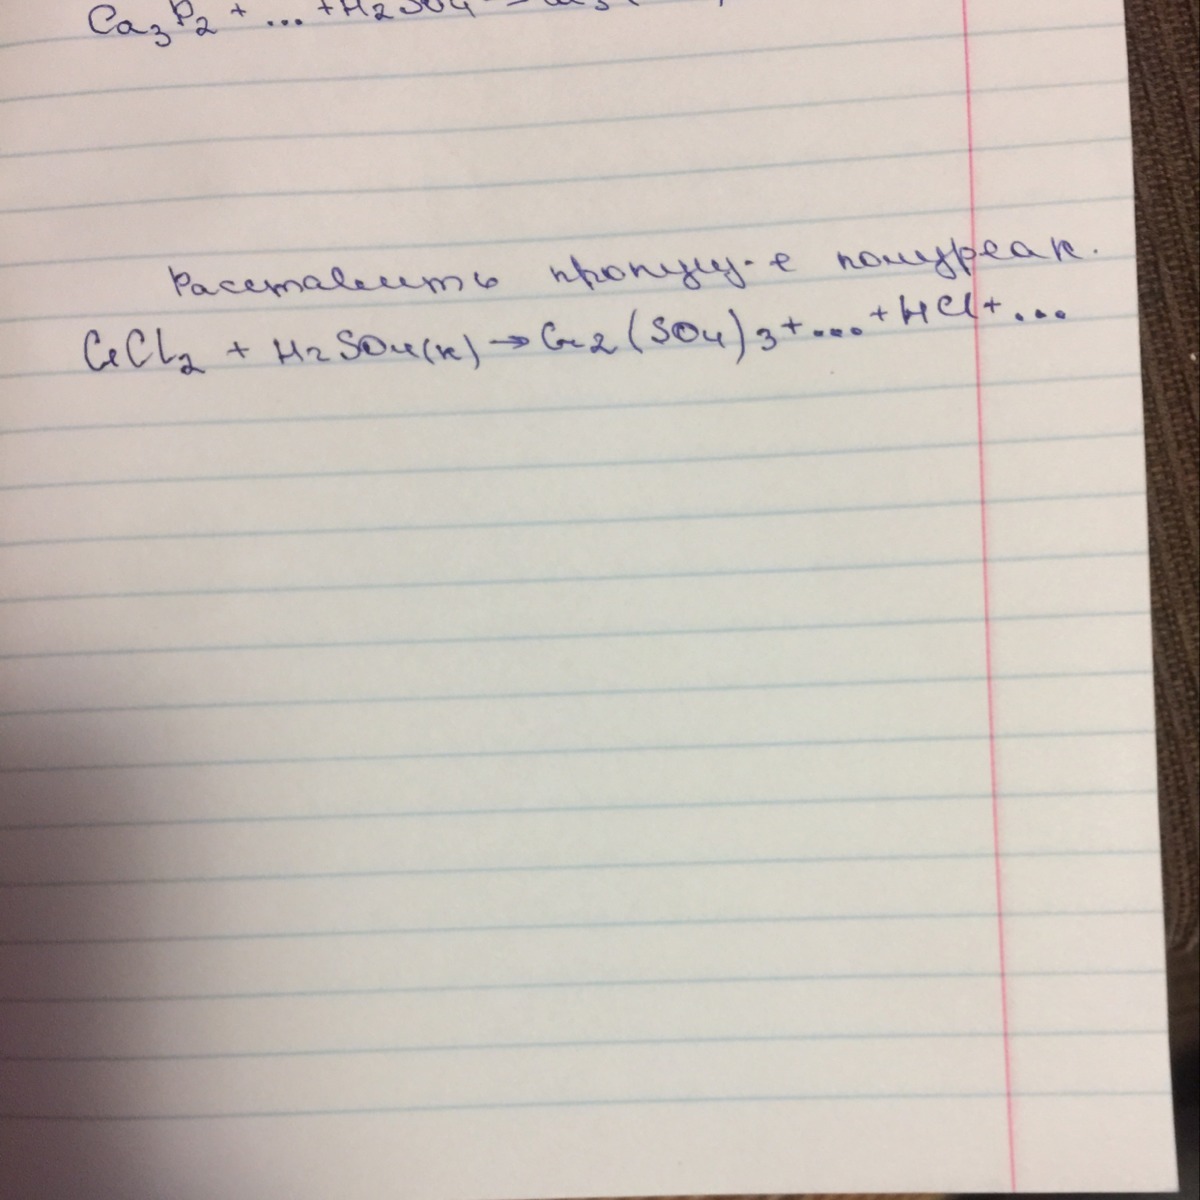 Ca₃P₂ + ... + H₂SO₄
Расставить пропущ-е полуреак.
CrCl₂ + H₂SO₄(к) → Cr₂(SO₄)₃ + ... + HCl + ...